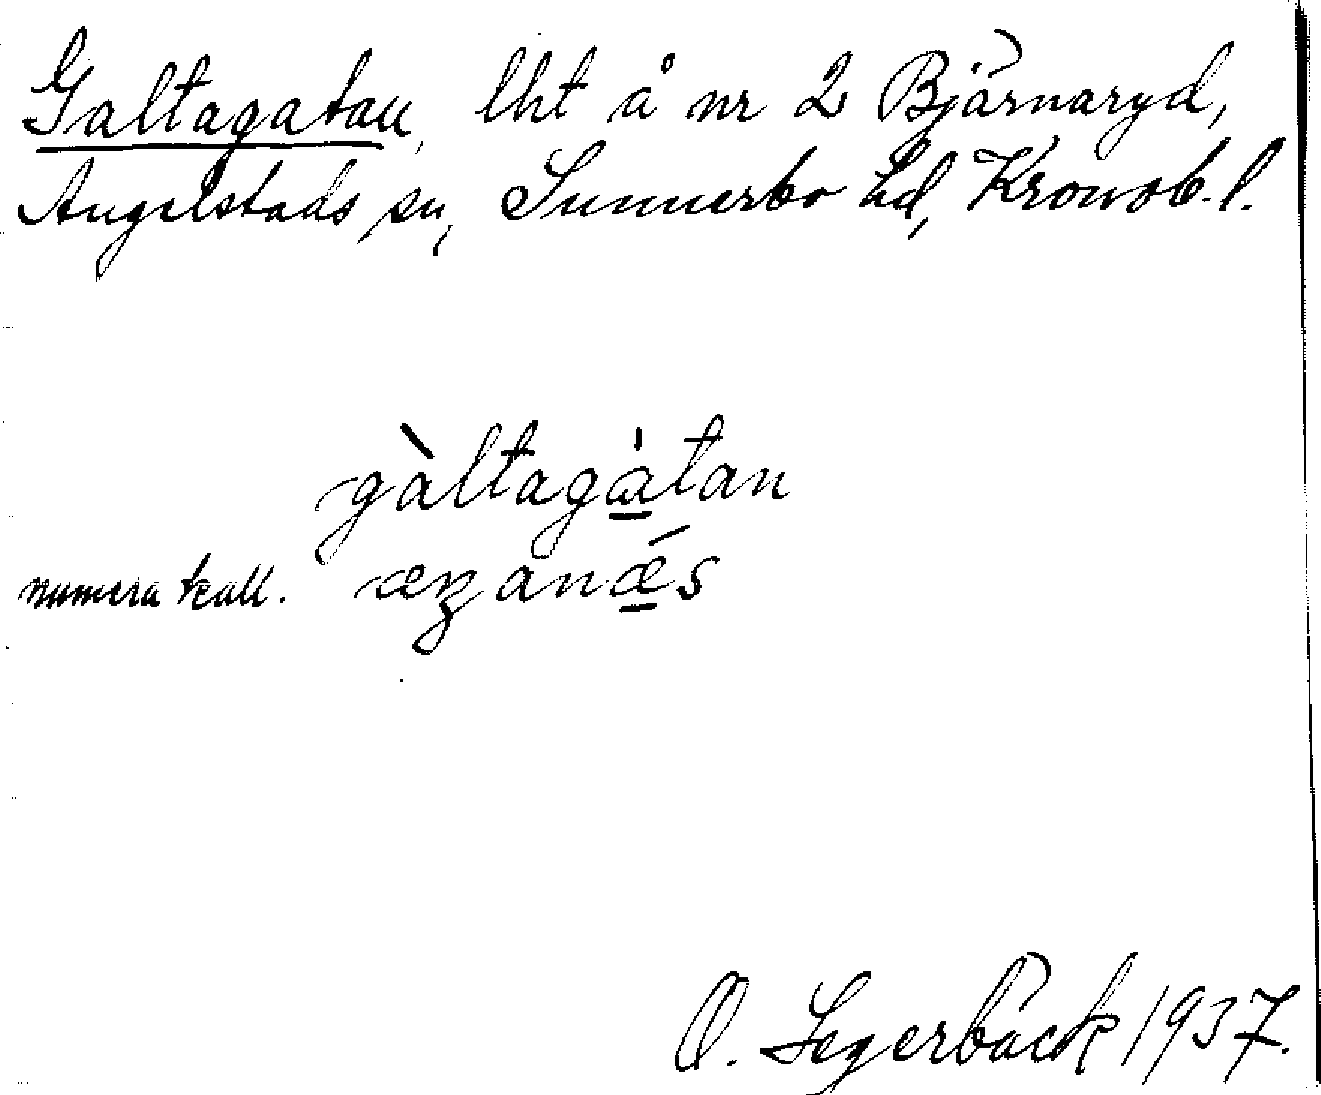 Galtagatan, lht å nr 2 Bjärnaryd,
Angelstads sn, Sunnerbo hd, Kronob. l.
gàltagàtan
numera kall.
O. Segerbäck 1937.